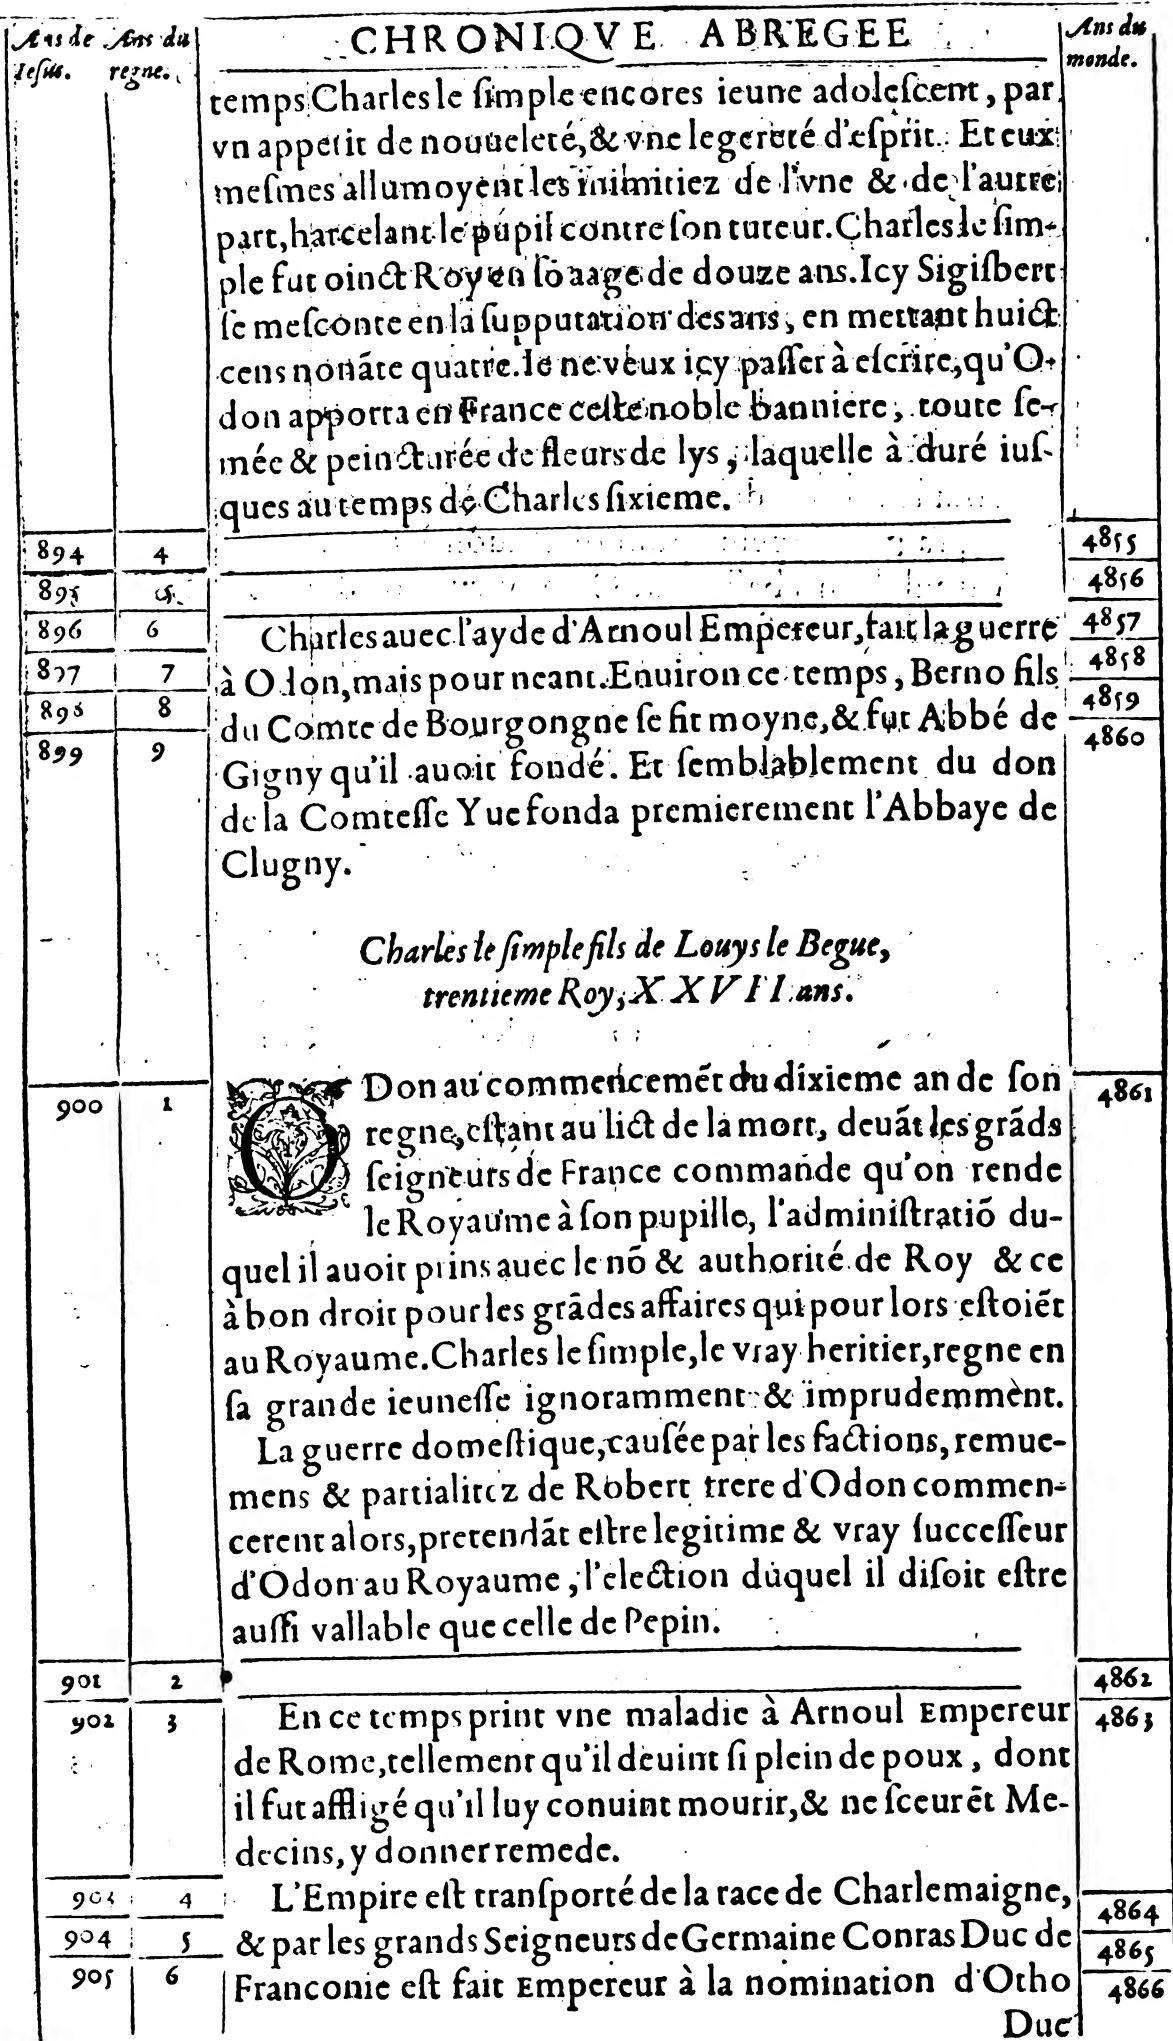 Ans de Ans du CHRONIQVE ABREGEE Ans du
Iesus. regne. monde.
temps Charles le ſimple encores ieune adoleſcent, par
vn appetit de nouueleté, & vne legereté d'eſprit. Et eux
meſmes allumoyent les inimitiez de l'vne & de l'autre
part, harcelant le pupil contre ſon tuteur. Charles le ſim-
ple fut oinct Roy en ſõ aage de douze ans. Icy Sigiſbert
ſe meſconte en la ſupputation des ans, en mettant huict
cens nonãte quatre. Ie ne veux icy paſſer à eſcrire, qu'O-
don apporta en France ceſte noble banniere, toute ſe-
mée & peincturée de fleurs de lys, laquelle à duré iuſ-
ques au temps de Charles ſixieme.
894 4 4855
895 5 4856
896 6 Charles auec l'ayde d'Arnoul Empereur, fait la guerre 4857
897 7 à Odon, mais pour neant. Enuiron ce temps, Berno fils 4858
898 8 du Comte de Bourgongne ſe fit moyne, & fut Abbé de 4859
899 9 Gigny qu'il auoit fondé. Et ſemblablement du don 4860
de la Comteſſe Yue fonda premierement l'Abbaye de
Clugny.
Charles le ſimple fils de Louys le Begue,
trentieme Roy, XXVII ans.
900 1 ODon au commencemẽt du dixieme an de ſon 4861
regne, eſtant au lict de la mort, deuãt les grãds
ſeigneurs de France commande qu'on rende
le Royaume à ſon pupille, l'adminiſtratiõ du-
quel il auoit prins auec le nõ & authorité de Roy & ce
à bon droit pour les grãdes affaires qui pour lors eſtoiẽt
au Royaume. Charles le ſimple, le vray heritier, regne en
ſa grande ieuneſſe ignoramment & imprudemmènt.
La guerre domeſtique, cauſée par les factions, remue-
mens & partialitez de Robert frere d'Odon commen-
cerent alors, pretendãt eſtre legitime & vray ſucceſſeur
d'Odon au Royaume, l'election duquel il diſoit eſtre
auſſi vallable que celle de Pepin.
901 2 4862
902 3 En ce temps print vne maladie à Arnoul Empereur 4863
de Rome, tellement qu'il deuint ſi plein de poux, dont
il fut affligé qu'il luy conuint mourir, & ne ſceurẽt Me-
decins, y donner remede.
903 4 L'Empire eſt tranſporté de la race de Charlemaigne, 4864
904 5 & par les grands Seigneurs de Germaine Conras Duc de 4865
905 6 Franconie eſt fait Empereur à la nomination d'Otho 4866
Duc